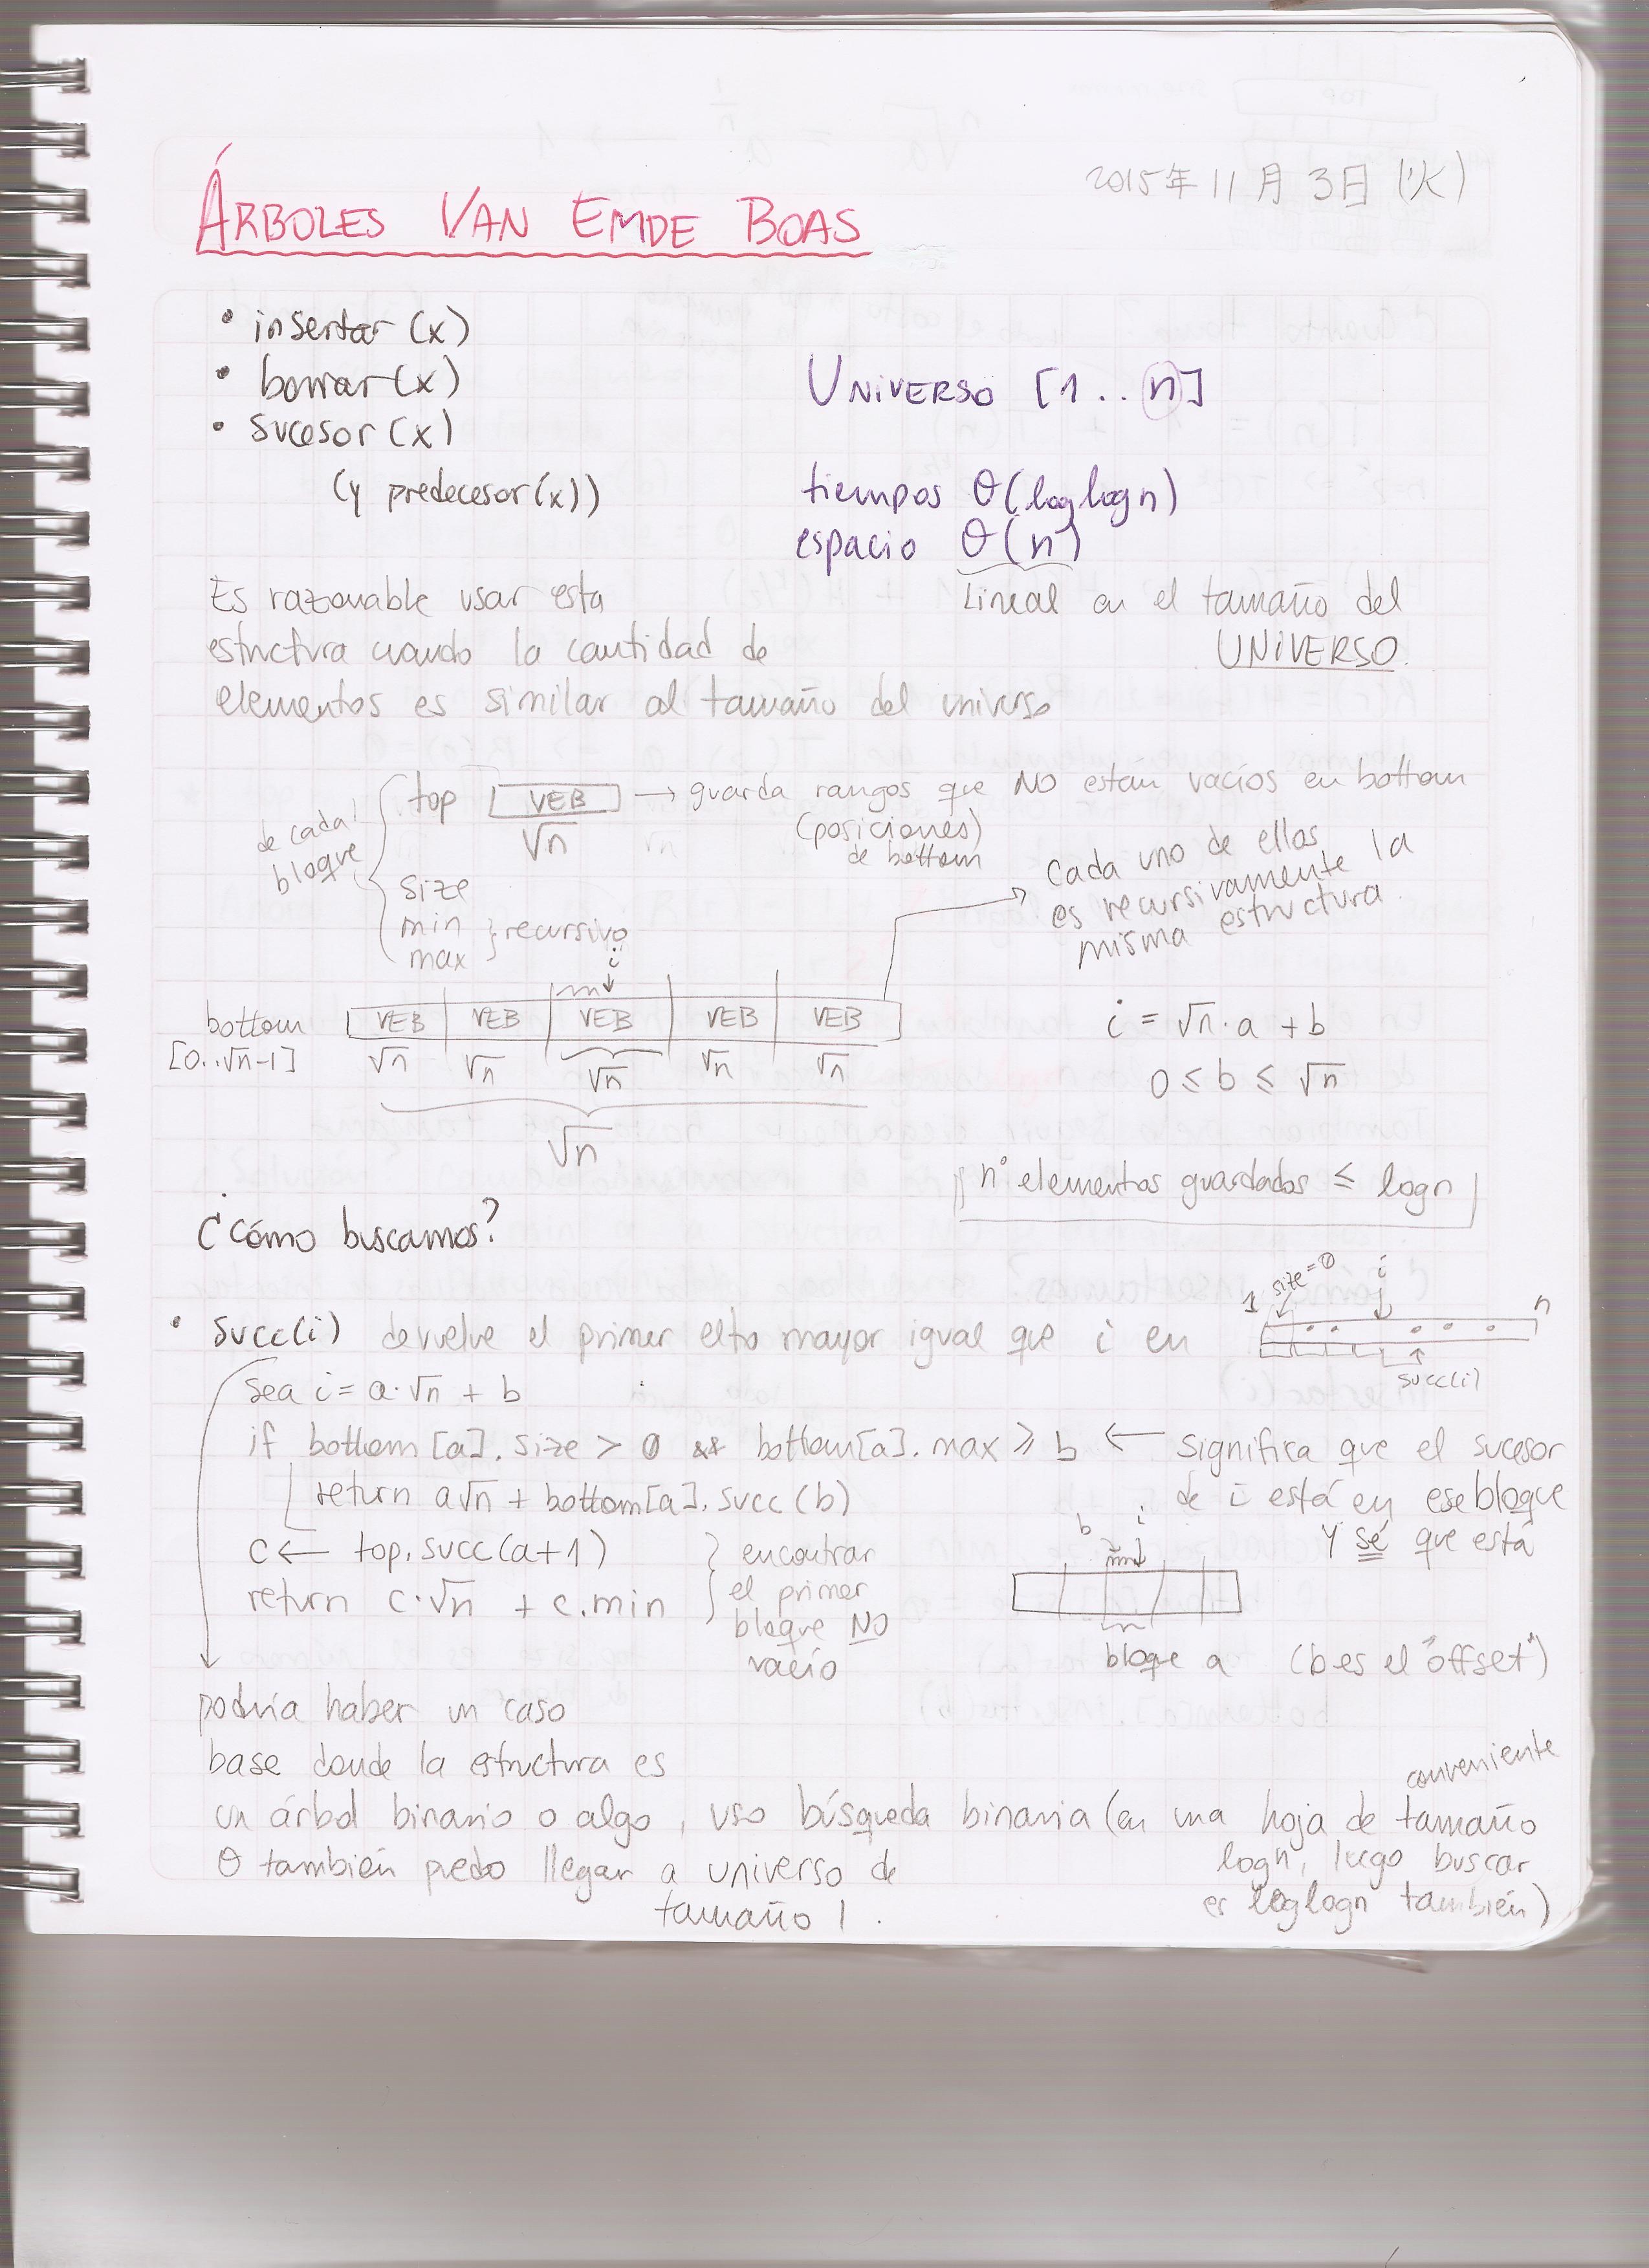 2015年11月3日(火)
ÁRBOLES VAN EMDE BOAS
• insertar (x)
• borrar (x)
• sucesor (x)
(y predecesor (x))
UNIVERSO [1..n]
tiempos θ(loglogn)
espacio θ(n)
Lineal en el tamaño del
UNIVERSO.
Es razonable usar esta
estructura cuando la cantidad de
elementos es similar al tamaño del universo
de cada
bloque
top VEB → guarda rangos que NO están vacíos en bottom
√n
(posiciones)
de bottom
size
min
max
recursivo
cada uno de ellos
es recursivamente la
misma estructura.
i
bottom
[0..√n-1]
VEB VEB VEB VEB VEB
√n √n √n √n √n
√n
i = √n·a + b
0 ≤ b ≤ √n
n° elementos guardados ≤ logn
¿Cómo buscamos?
• succ(i) devuelve el primer elto mayor igual que i en
1 size=0 i n
succ(i)
sea i = a·√n + b
if bottom[a].size > 0 && bottom[a].max ≥ b ← significa que el sucesor
de i está en ese bloque
y sé que está
return a√n + bottom[a].succ(b)
c ← top.succ(a+1)
return c·√n + c.min
encontrar
el primer
bloque NO
vacío
b i
bloque a (b es el "offset")
podría haber un caso
base donde la estructura es
un árbol binario o algo, uso búsqueda binaria (en una hoja de tamaño
conveniente
logn, luego buscar
es loglogn también)
O también puedo llegar a universo de
tamaño 1.